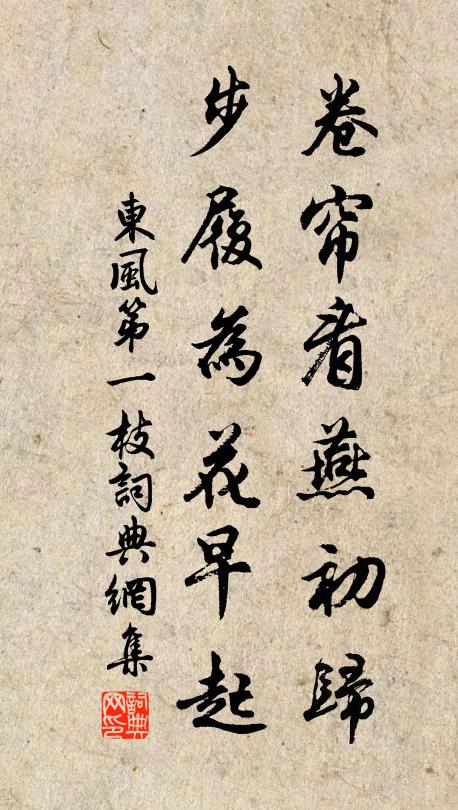 卷帘看燕初歸
步履為花早起
東風第一枝詞典網集
詞典网印